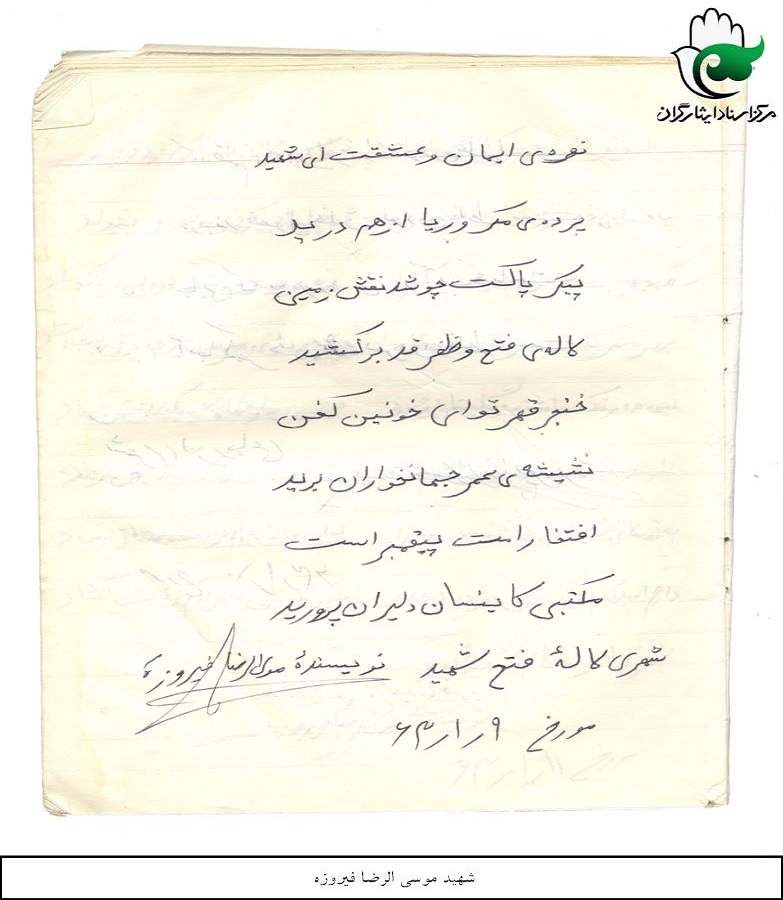 مرکز اسناد ایثارگران
نعره‌ی ایمان و عشقت ای شهید
پرده‌ی مکر و ریا از هم درید
پیکر پاکت چو شد نقش زمین
کاله‌ی فتح و ظفر قد برکشید
خنجر قهر تو ای خونین کفن
شیشه‌ی عمر جهانخواران برید
افتخار امت پیغمبر است
مکتبی کاینسان دلیران پرورید
شعری کالهٔ فتح شهید نویسندهٔ موسی الرضا فیروزه
مورخ ۹ر۱ر۶۳
شهید موسی الرضا فیروزه